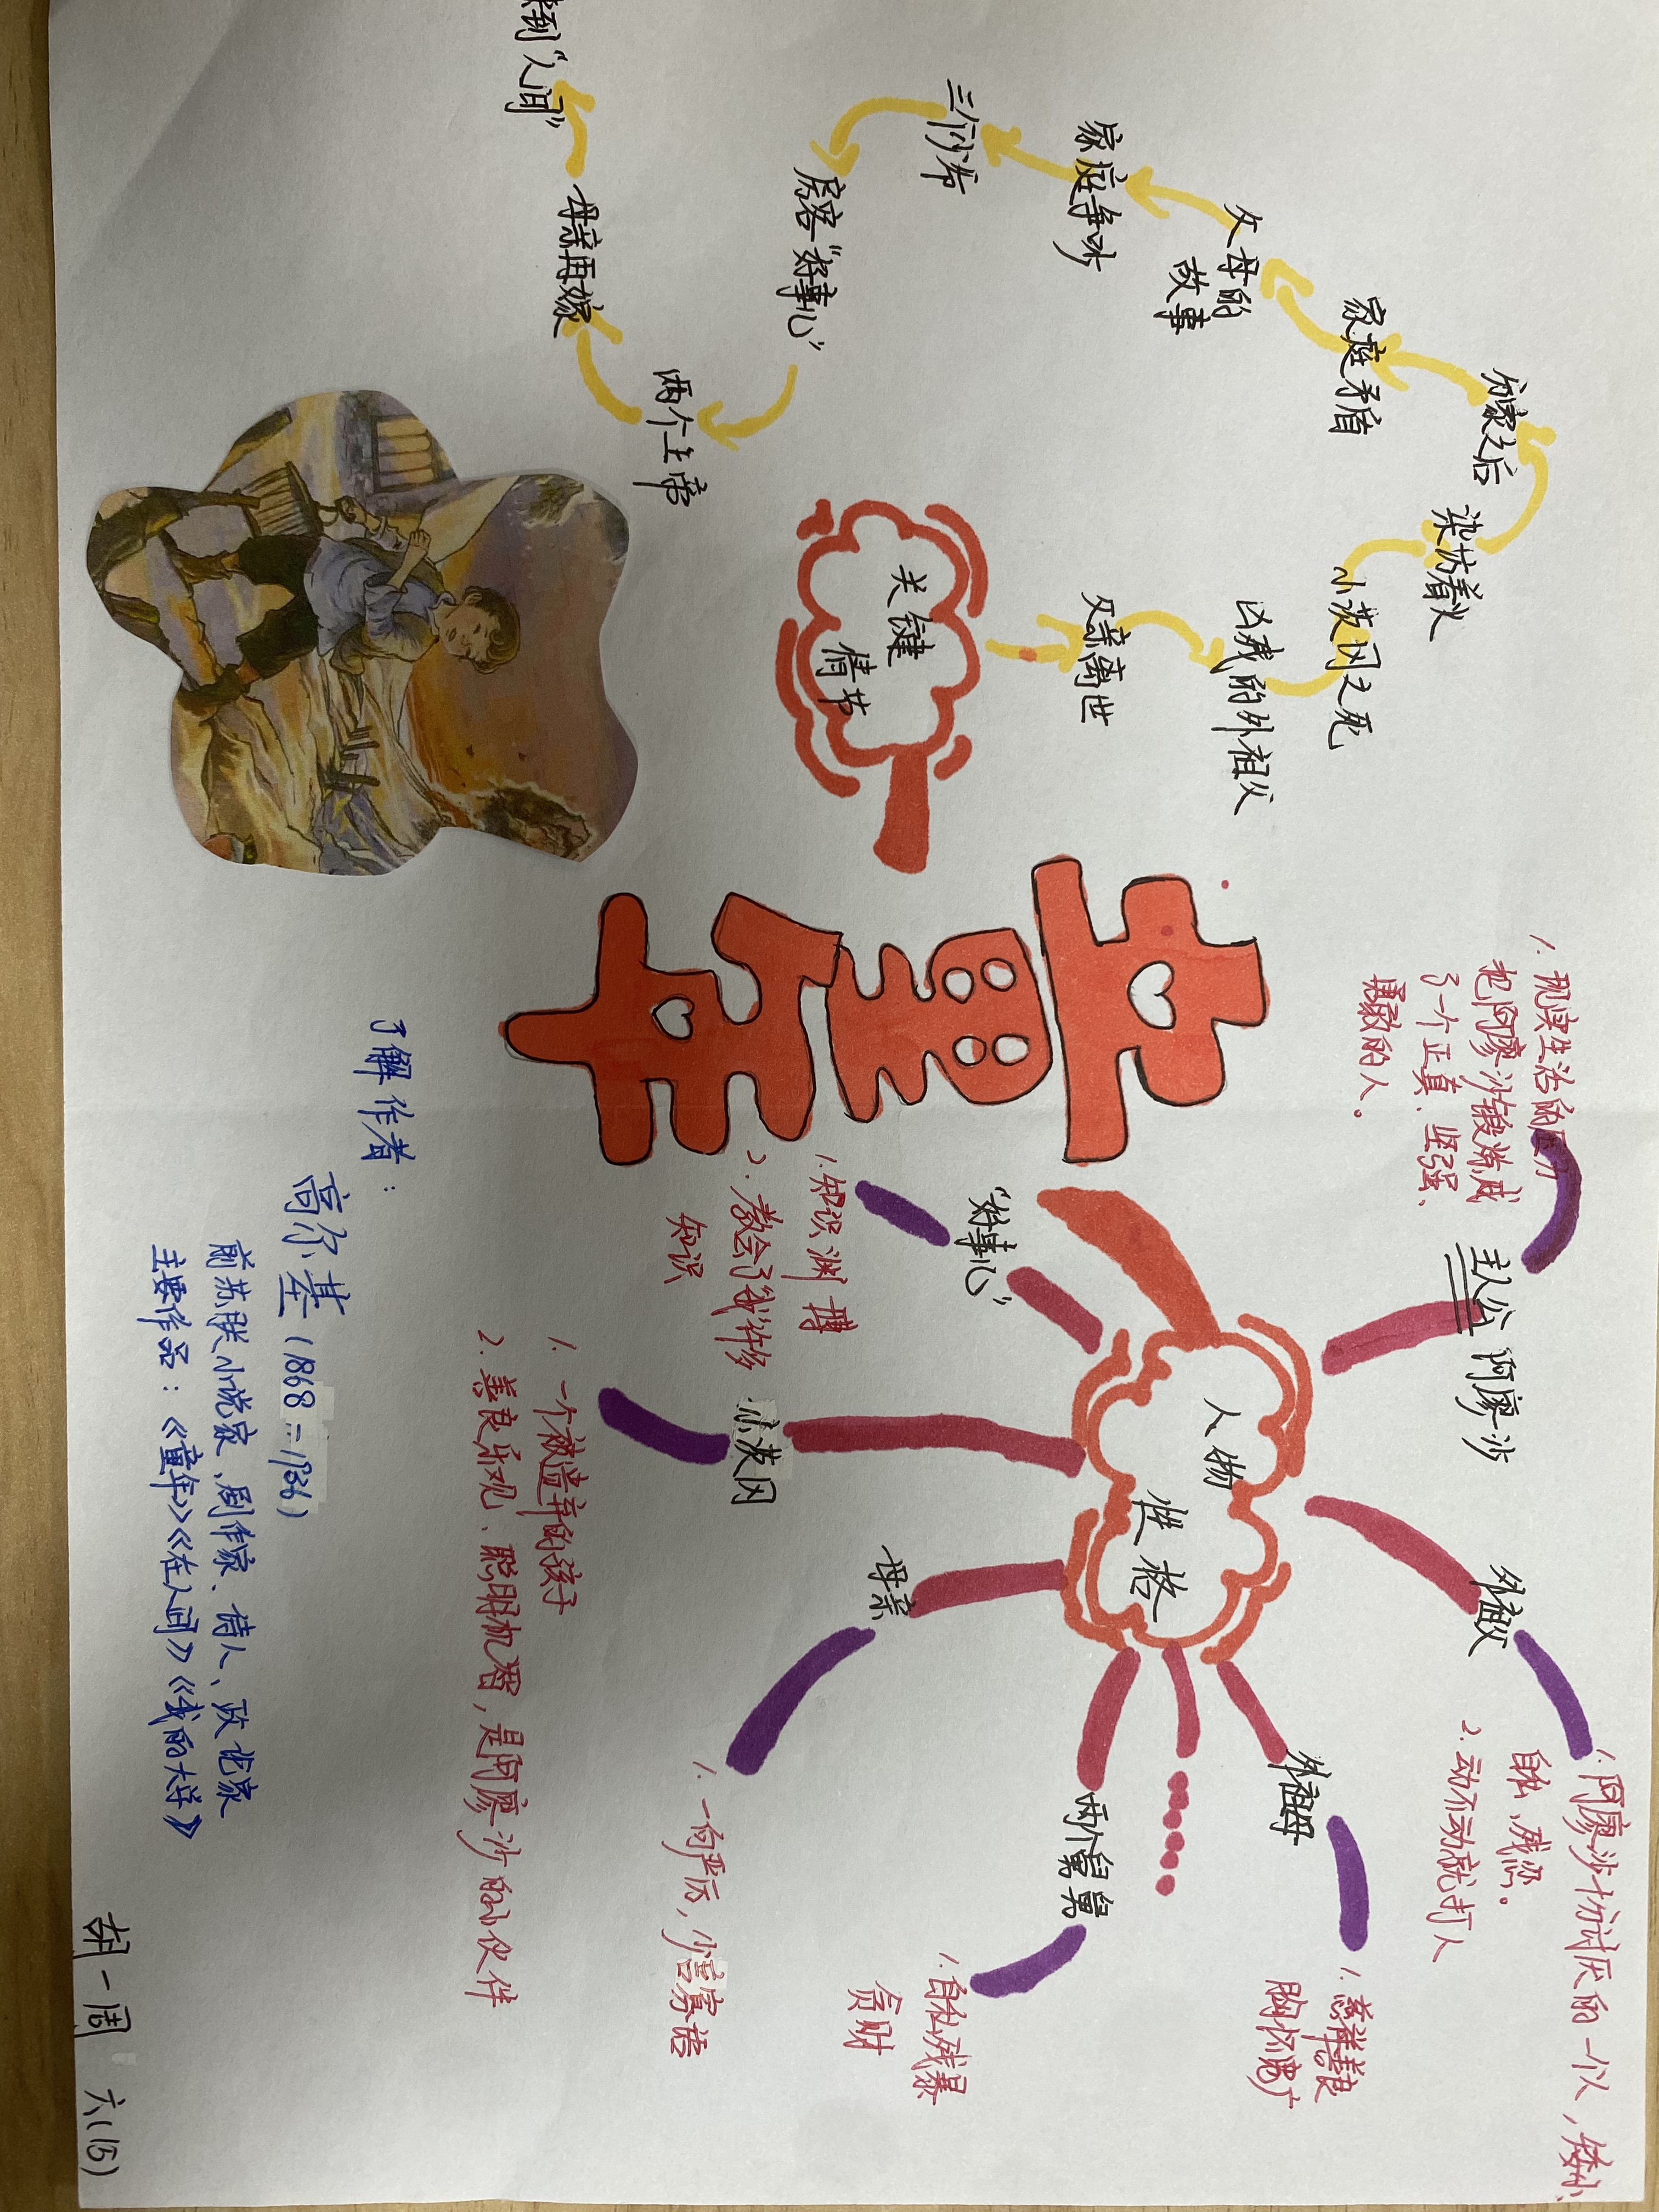 童年
关键
情节
父亲离世
凶残的外祖父
小茨冈之死
染坊着火
分家之后
家庭矛盾
父母的
故事
家庭争吵
三个沙布
房客“好事儿”
两个上帝
母亲再嫁
到“人间”
人物
性格
主人公 阿廖沙
1. 现实生活的压力
把阿廖沙锻炼成
了一个正真、坚强、
勇敢的人。
外祖父
1. 阿廖沙十分讨厌的一个人，矮小
自私、残忍。
2. 动不动就打人
外祖母
1. 慈祥善良
胸怀宽广
两个舅舅
1. 自私残暴
贪财
母亲
1. 一向严厉，少言寡语
小茨冈
1. 一个被遗弃的孩子
2. 善良乐观、聪明机智，是阿廖沙的小伙伴
“好事儿”
1. 知识渊博
2. 教会了“我”许多
知识
了解作者：
高尔基（1868-1936）
前苏联小说家、剧作家、诗人、政论家
主要作品：《童年》《在人间》《我的大学》
胡一周 六（15）